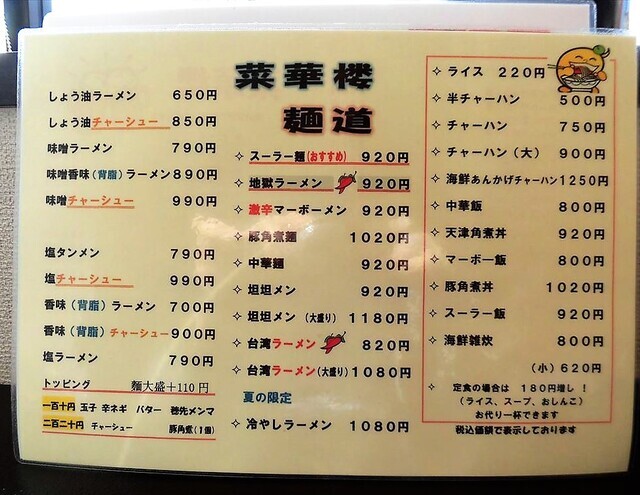 菜華楼
麺道
しょう油ラーメン 650円
しょう油チャーシュー 850円
味噌ラーメン 790円
味噌香味(背脂)ラーメン890円
味噌チャーシュー 990円
塩タンメン 790円
塩チャーシュー 990円
香味(背脂)ラーメン 700円
香味(背脂)チャーシュー900円
塩ラーメン 790円
トッピング 麺大盛+110円
一百十円 玉子 辛ネギ バター 穂先メンマ
二百二十円 チャーシュー 豚角煮(1個)
✧ スーラー麺(おすすめ) 920円
✧ 地獄ラーメン 920円
✧ 激辛マーボーメン 920円
✧ 豚角煮麺 1020円
✧ 中華麺 920円
✧ 坦坦メン 920円
✧ 坦坦メン(大盛り) 1180円
✧ 台湾ラーメン 820円
✧ 台湾ラーメン(大盛り)1080円
夏の限定
✧ 冷やしラーメン 1080円
✧ ライス 220円
✧ 半チャーハン 500円
✧ チャーハン 750円
✧ チャーハン(大) 900円
✧ 海鮮あんかけチャーハン1250円
✧ 中華飯 800円
✧ 天津角煮丼 920円
✧ マーボー飯 800円
✧ 豚角煮丼 1020円
✧ スーラー飯 920円
✧ 海鮮雑炊 800円
(小)620円
✧ 定食の場合は 180円増し!
(ライス、スープ、おしんこ)
お代り一杯できます
税込価額で表示しております